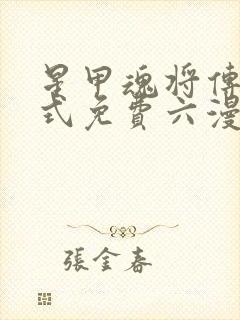 星甲魂将傳
式免費六漫
張金春